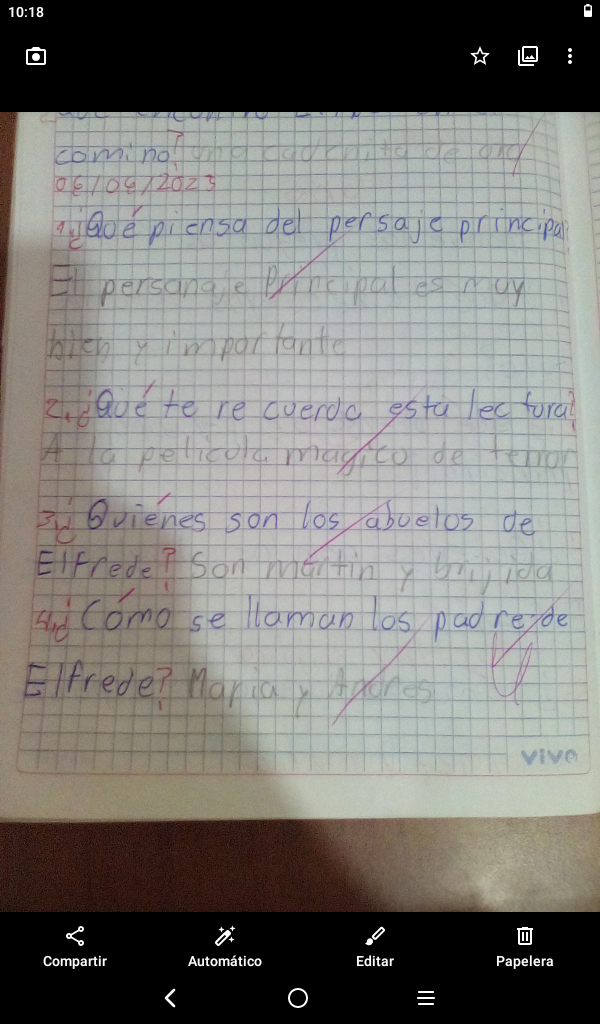 10:18
comino? una cadenita de oro
06/06/2023
1.¿Qué piensa del persaje principal
El persanaje Principal es muy
bien y importante
2.¿Qué te re cuerda esta lec tura?
A la pelicula magico de terror
3.¿Quiénes son los abuelos de
Elfrede? Son martin y brijida
4.¿Cómo se llaman los padre de
Elfrede? Maria y Andres
vivo
Compartir Automático Editar Papelera